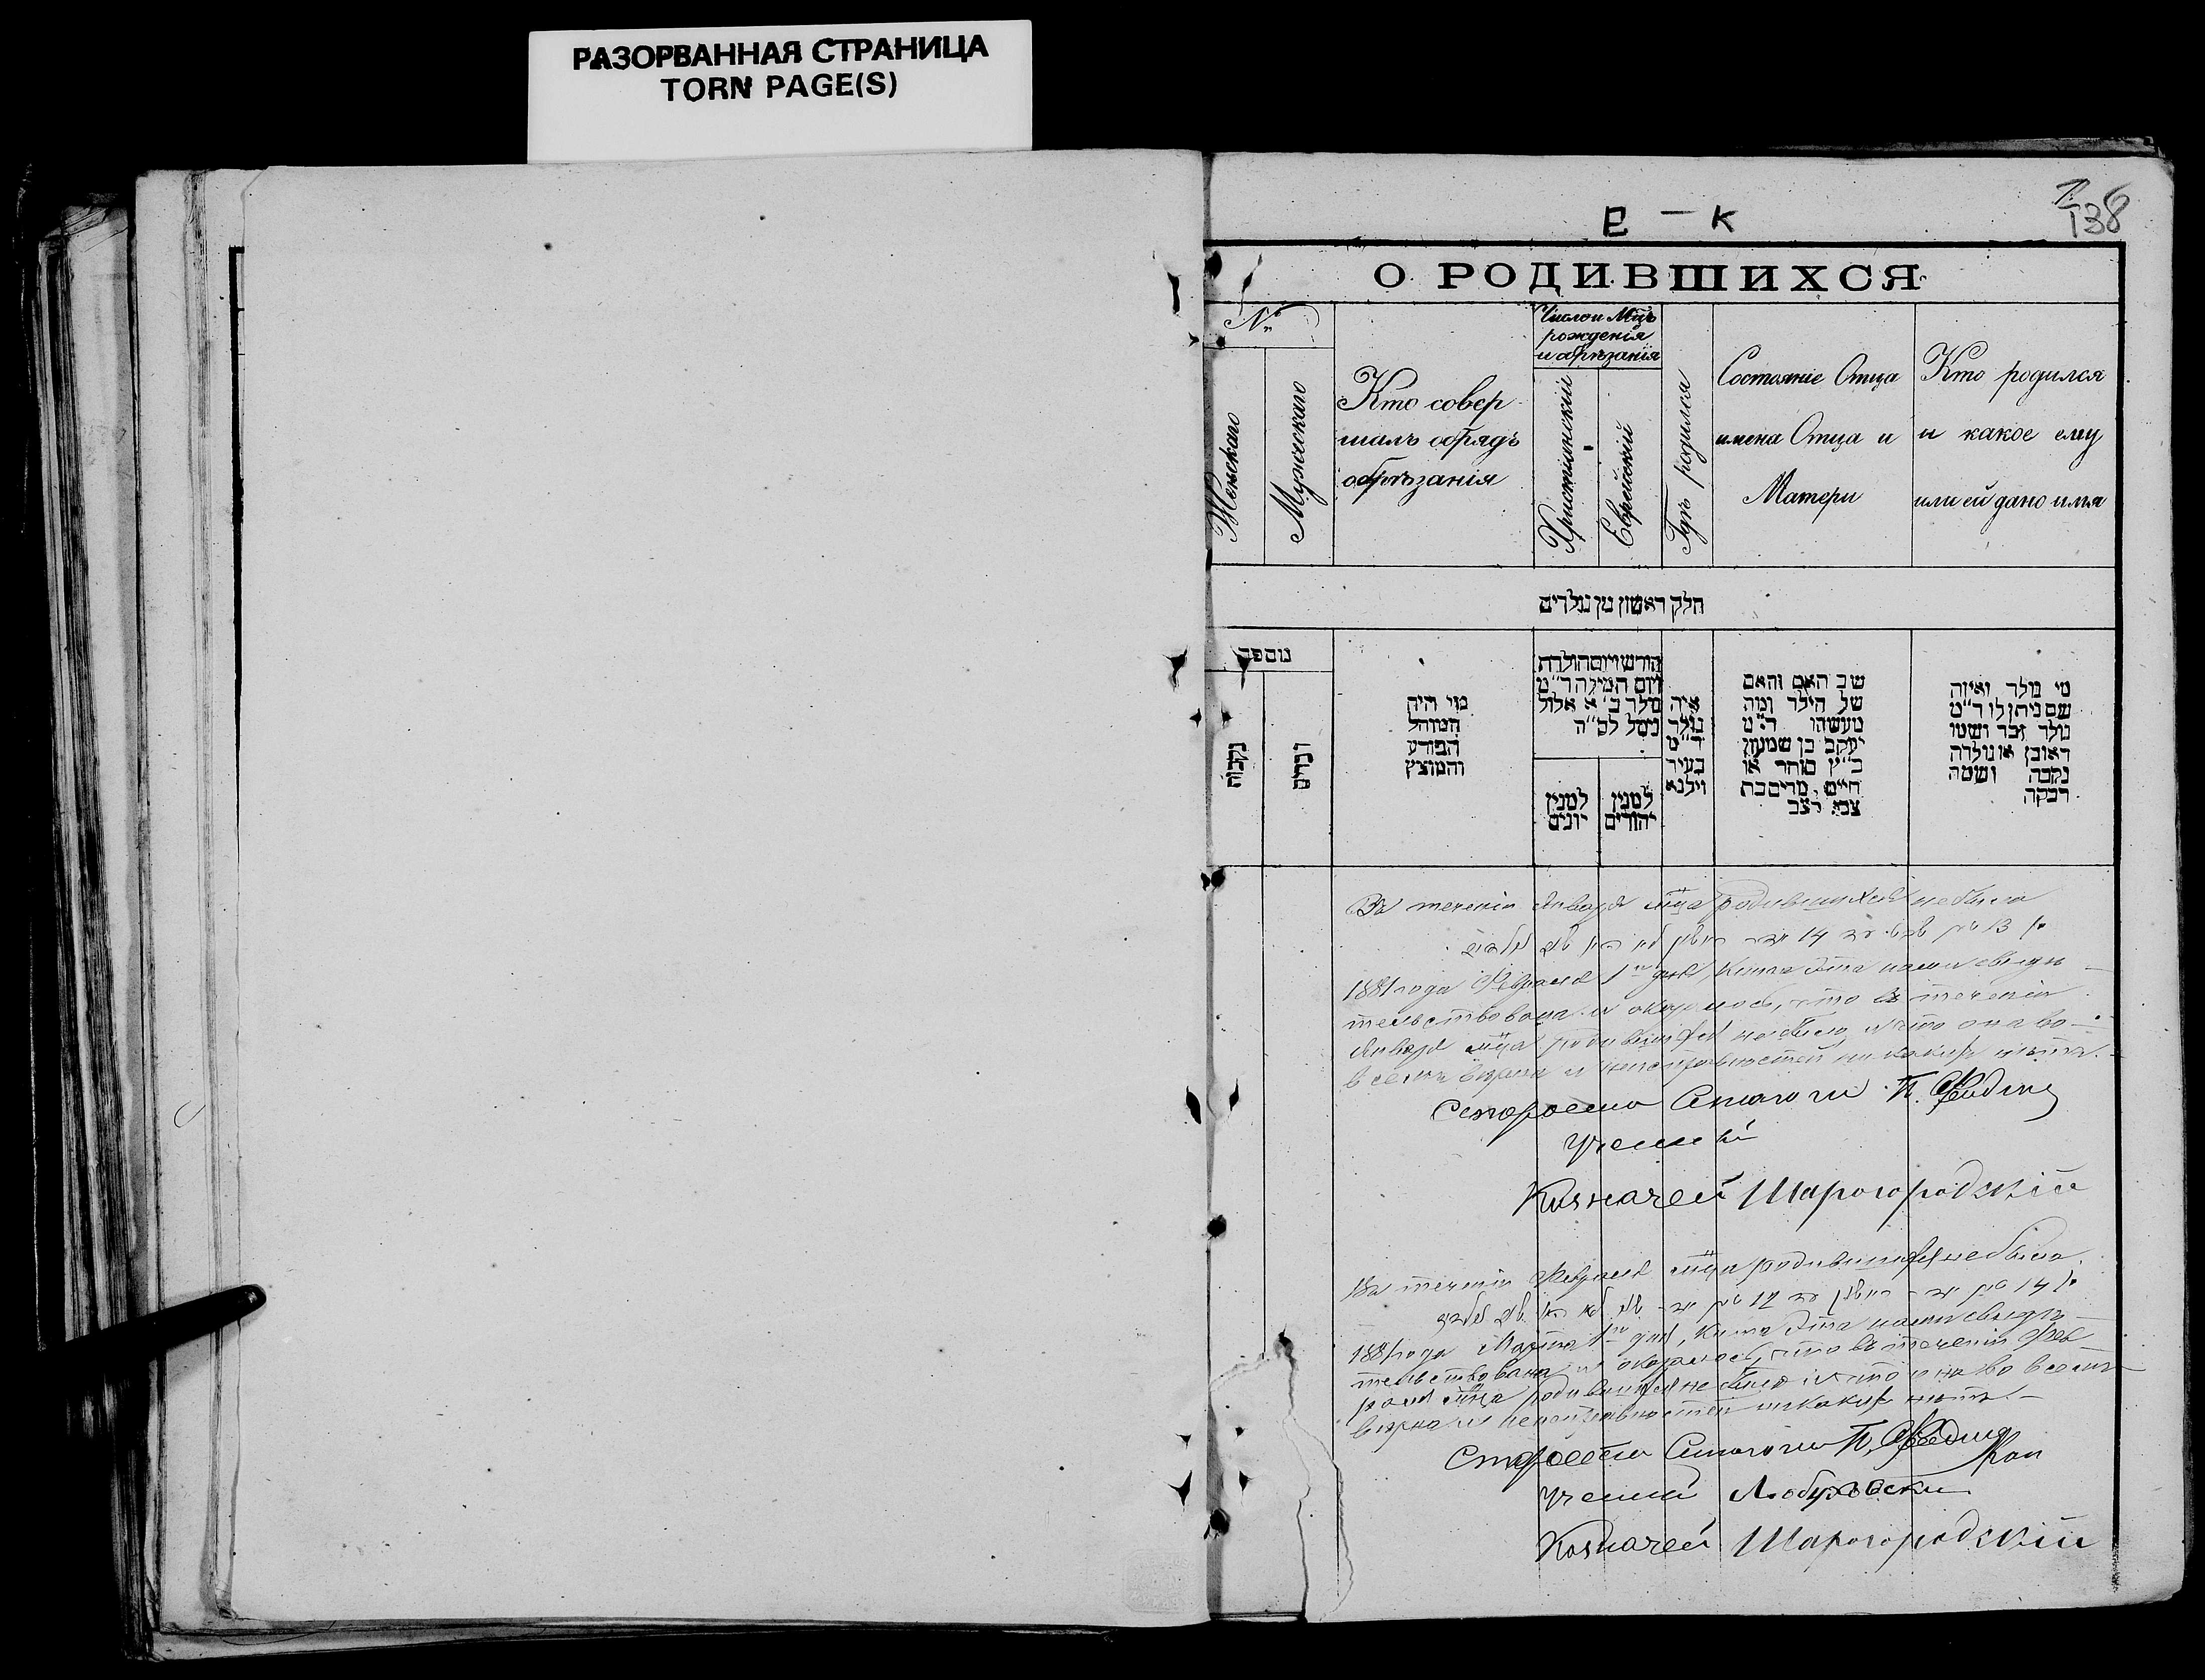 РАЗОРВАННАЯ СТРАНИЦА
TORN PAGE(S)
138
Е — К
О РОДИВШИХСЯ
№
Женскаго
Мужескаго
Кто совер
шалъ обрядъ
обрѣзанія
Число и Мцъ
рожденія
и обрѣзанія
Христіянскій
Еврейскій
Гдѣ родился
Состояніе Отца
имена Отца и
Матери
Кто родился
и какое ему
или ей дано имя
חלק ראשון מן נולדים
נומפר
נקבות
זכרים
מי היה
המוהל
הפורע
והמוצץ
חודש ויום הולדת
ויום המילה ד"מ
נולד כ"א אלול
נימל לס"ה
למנין
יונים
למנין
יהודים
איה
נולד
ד"מ
בעיר
ווילנא
שב האם והאם
של הילד ומה
מעשהו ד"מ
יעקב בן שמעון
כ"ץ סוחר או
חייט, מרים בת
צבי
מי נולד ואיזה
שם ניתן לו ד"מ
נולד זכר ושמו
ראובן או נולדה
נקבה ושמה
רבקה
Въ теченіи Января мца родившихся не было
1881 года Февраля 1го дня, Книга эта нами свидѣ
тельствована и оказалось, что въ теченіи
Января мца родившихся не было и что она во
всемъ вѣрна и неисправностей никакихъ нѣтъ.
Староста Синагоги
Ученый
Казначей Шарогородскій
Въ теченіи Февраля мца родившихся не было
1881 года Марта 1го дня, Книга эта нами свидѣ
тельствована и оказалось, что въ теченіи Фев
раля мца родившихся не было и что она во всемъ
вѣрна и неисправностей никакихъ нѣтъ.
Староста Синагоги
Ученый
Казначей Шарогородскій